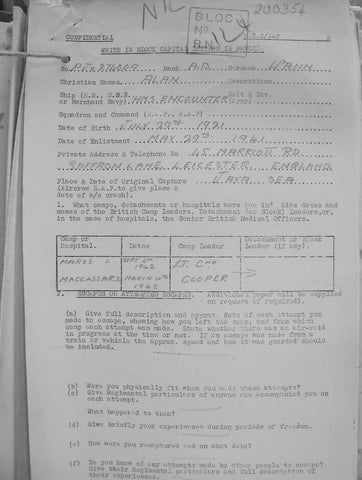 NIL
BLOCK
No
RN
NIL
200354
CONFIDENTIAL
WRITE IN BLOCK CAPITAL
Rank A.B. Surname
Christian Names ALAN Decorations.
Ship (R.N., U.S.N. or Merchant Navy). HMS ENCOUNTER Unit & Div. (Army)
Squadron and Command (R.A.F., A.A.F)
Date of Birth JULY 29th 1921
Date of Enlistment MAY 29th 1941
Private Address & Telephone No 65 MARRIOTT RD
SAFFRON LANE LEICESTER ENGLAND
Place & Date of Original Capture JAVA SEA
(Aircrew R.A.F. to give place &
date of a/c crash).
1. What camps, detachments or hospitals were you in? Give dates and
names of the British Camp Leaders, Detachment (or Block) Leaders, or,
in case of hospitals, the Senior British Medical Officers.
Camp or Hospital. Dates Camp Leader Detachment or Block Leader (if any).
MAROS 1. SEPT 1942 LT. CMD
MACCASSAR 2. MARCH 10th 1942 COOPER
2. ESCAPES OR ATTEMPTED ESCAPES. Additional paper will be supplied
on request if required).
(a) Give full description and approx. date of each attempt you
made to escape, showing how you left the camp, and from which
camp each attempt was made. State whether there was an air-raid
in progress at the time or not. If an escape was made from a
train or vehicle the approx. speed and how it was guarded should
be included.
(b) Were you physically fit when you made these attempts?
(c) Give Regimental particulars of anyone who accompanied you on
each attempt.
What happened to them?
(d) Give briefly your experiences during periods of freedom.
(e) How were you recaptured and on what date?
(f) Do you know of any attempts made by other people to escape?
Give their Regimental particulars and full description of
their experiences.